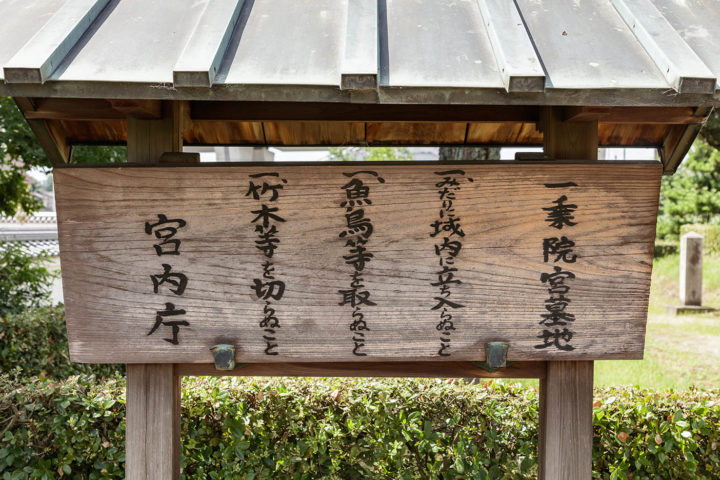 一乗院宮墓地
一、みだりに域内に立ち入らぬこと
一、魚鳥等を取らぬこと
一、竹木等を切らぬこと
宮内庁